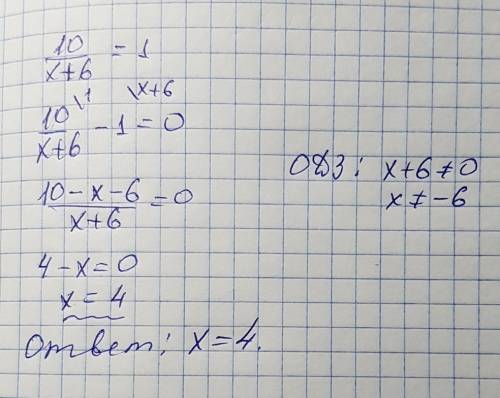 10/(x+6) = 1
10/(x+6) \1 - 1 \x+6 = 0
(10-x-6)/(x+6) = 0
4-x=0
x = 4
Ответ: x=4.
ОДЗ: x+6≠0
x≠-6